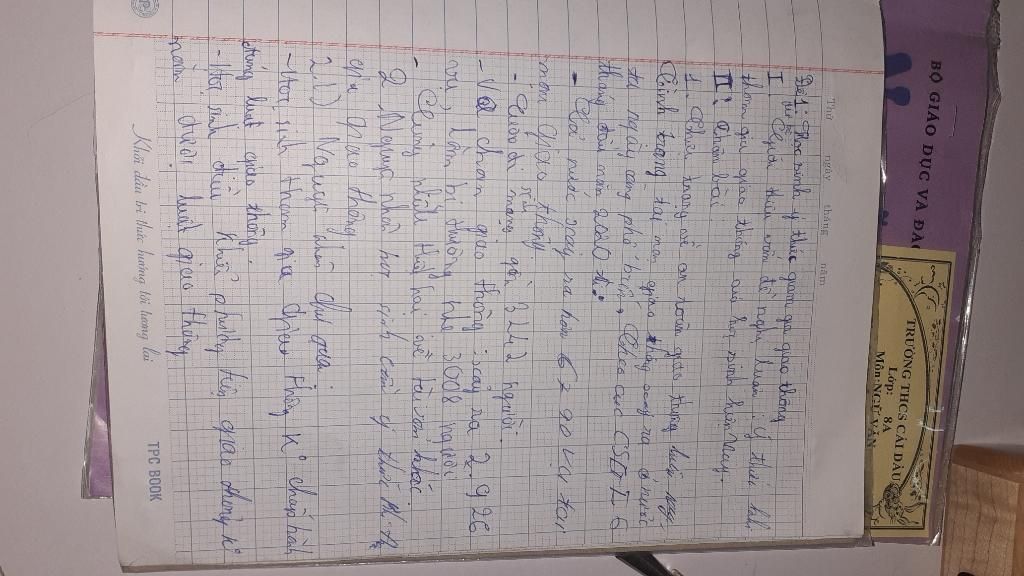 Thứ ngày tháng năm
Đề 1: Học sinh ý thức tham gia giao thông
I Mở bài
Giới thiệu vấn đề nghị luận: ý thức khi
tham gia giao thông của học sinh hiện nay.
II: Thân bài
1. Thực trạng về an toàn giao thông hiện nay
Tình trạng tai nạn giao thông xảy ra ở nước
ta ngày càng phổ biến, Theo cục CSGT 6
tháng đầu năm 2020 thì:
- Cả nước xảy ra hơn 6790 vụ tai
nạn giao thông
- Cướp đi mạng gần 3242 người.
- Va chạm giao thông xảy ra 2.926
vụ, làm bị thương nhẹ 308 người
- Cùng nhiều thiệt hại về tài sản khác
2. Nguyên nhân học sinh có ý thức tham
gia giao thông
2.1) Nguyên nhân chủ quan
- Học sinh tham gia giao thông k° chấp hành
đúng luật giao thông
- Học sinh điều khiển phương tiện giao thông k°
nắm được luật giao thông
Khơi đầu tri thức hướng tới tương lai
TPC BOOK
BỘ GIÁO DỤC VÀ ĐÀO
TRƯỜNG THCS CÁI DẦU
Lớp: 8A
Môn: NGỮ VĂN